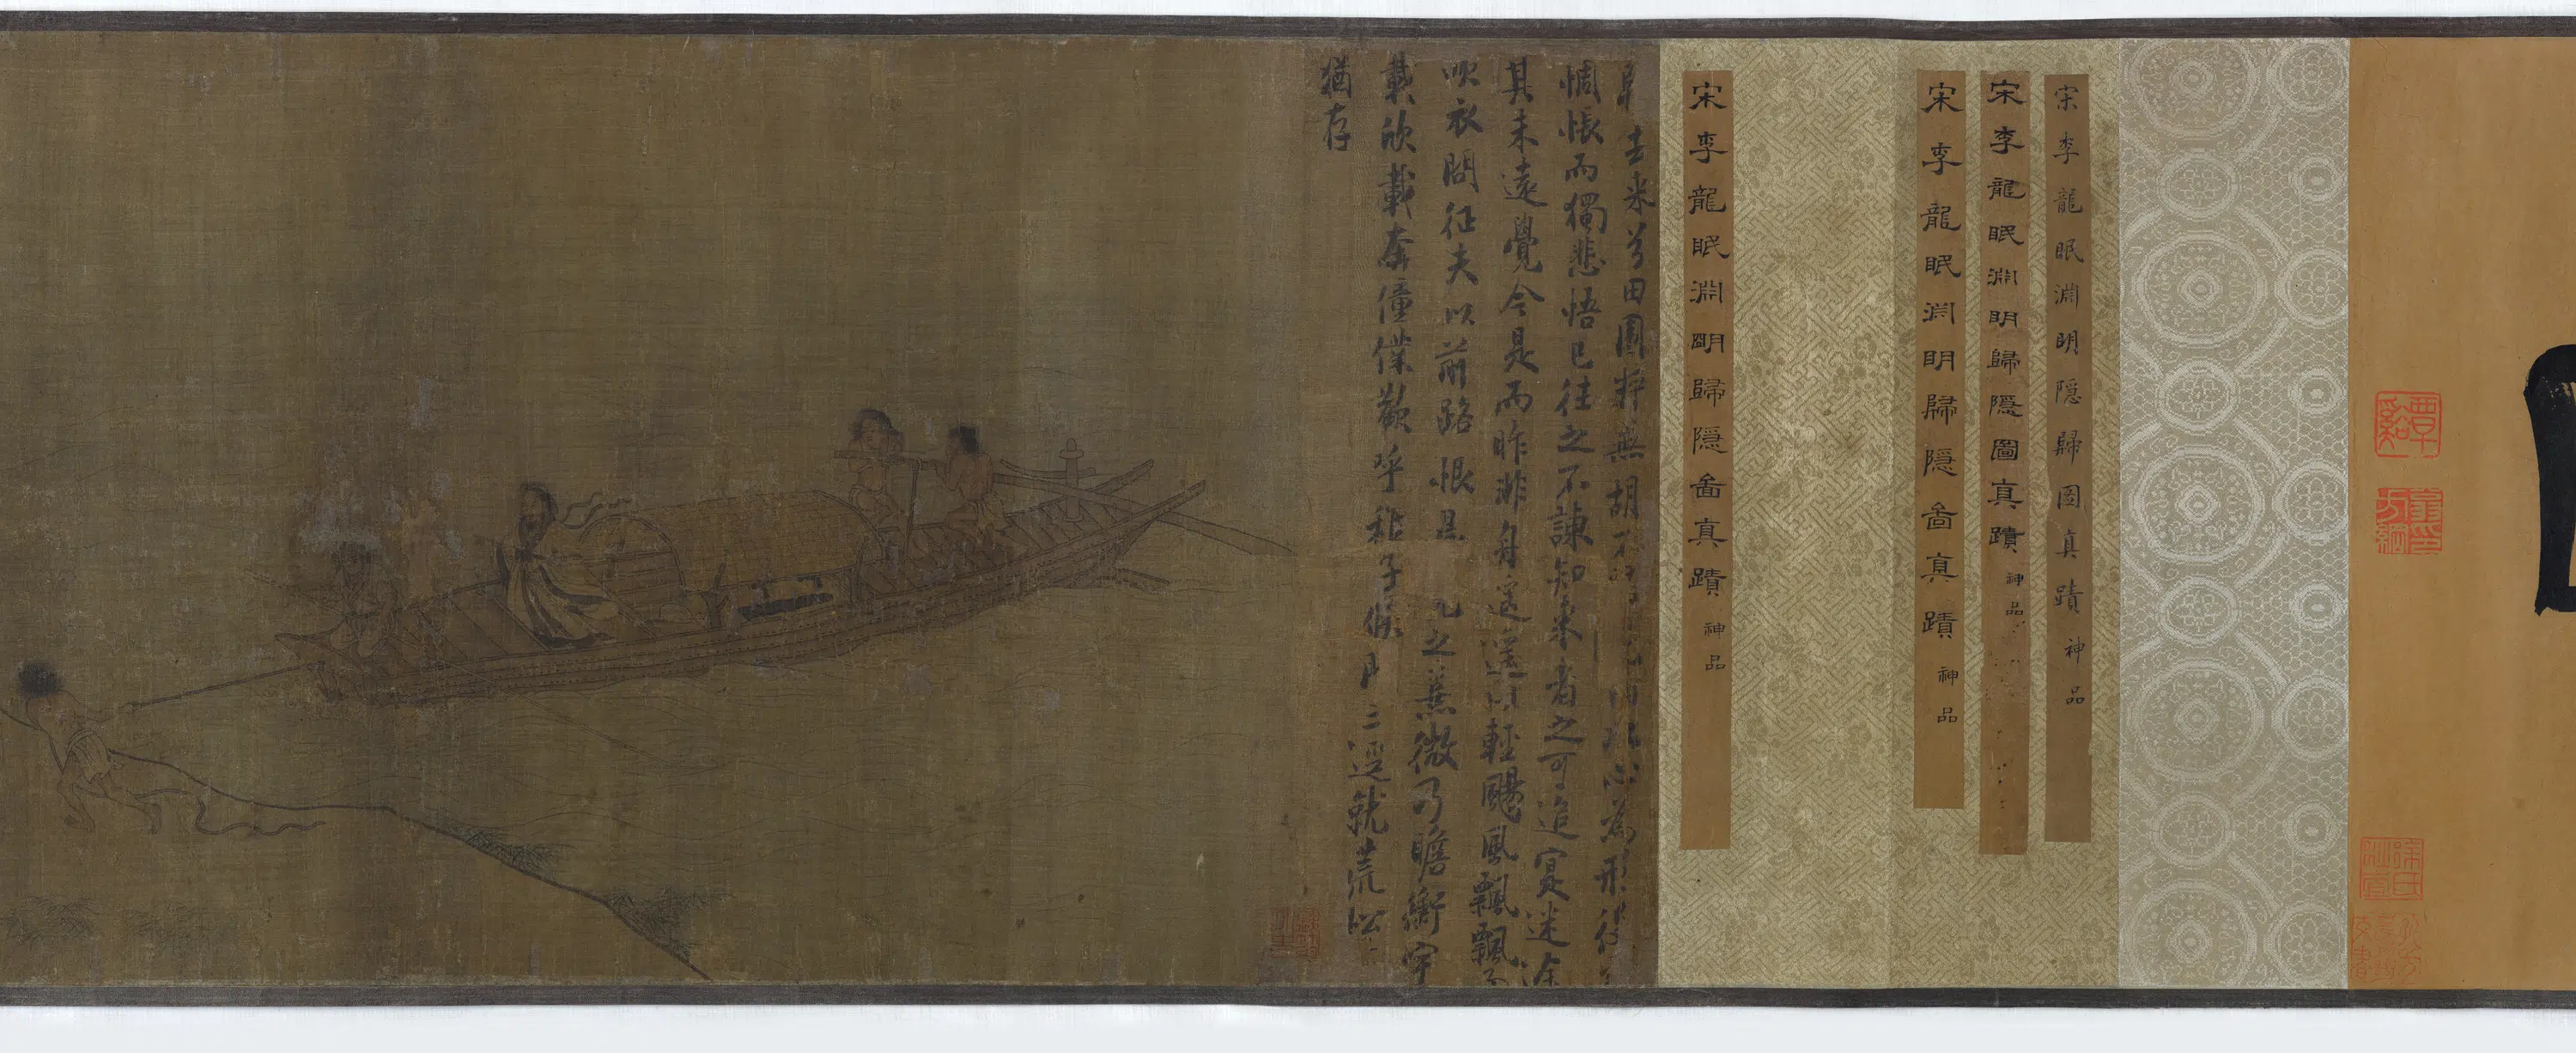 宋李龍眠淵明隠歸圖真蹟神品
宋李龍眠淵明歸隠圖真蹟神品
宋李龍眠淵明歸隠啚真蹟神品
宋李龍眠淵明歸隠啚真蹟神品
去來兮田園將蕪胡不心為形役
惆悵而獨悲悟已往之不諫知來者之可追寔迷途
其未遠覺今是而昨非舟遥遥以輕颺風飄飄而
吹衣問征夫以前路恨晨之熹微乃瞻衡宇
載欣載奔僮僕歡呼稚子候門三逕就荒松
猶存
覃谿
翁方綱印